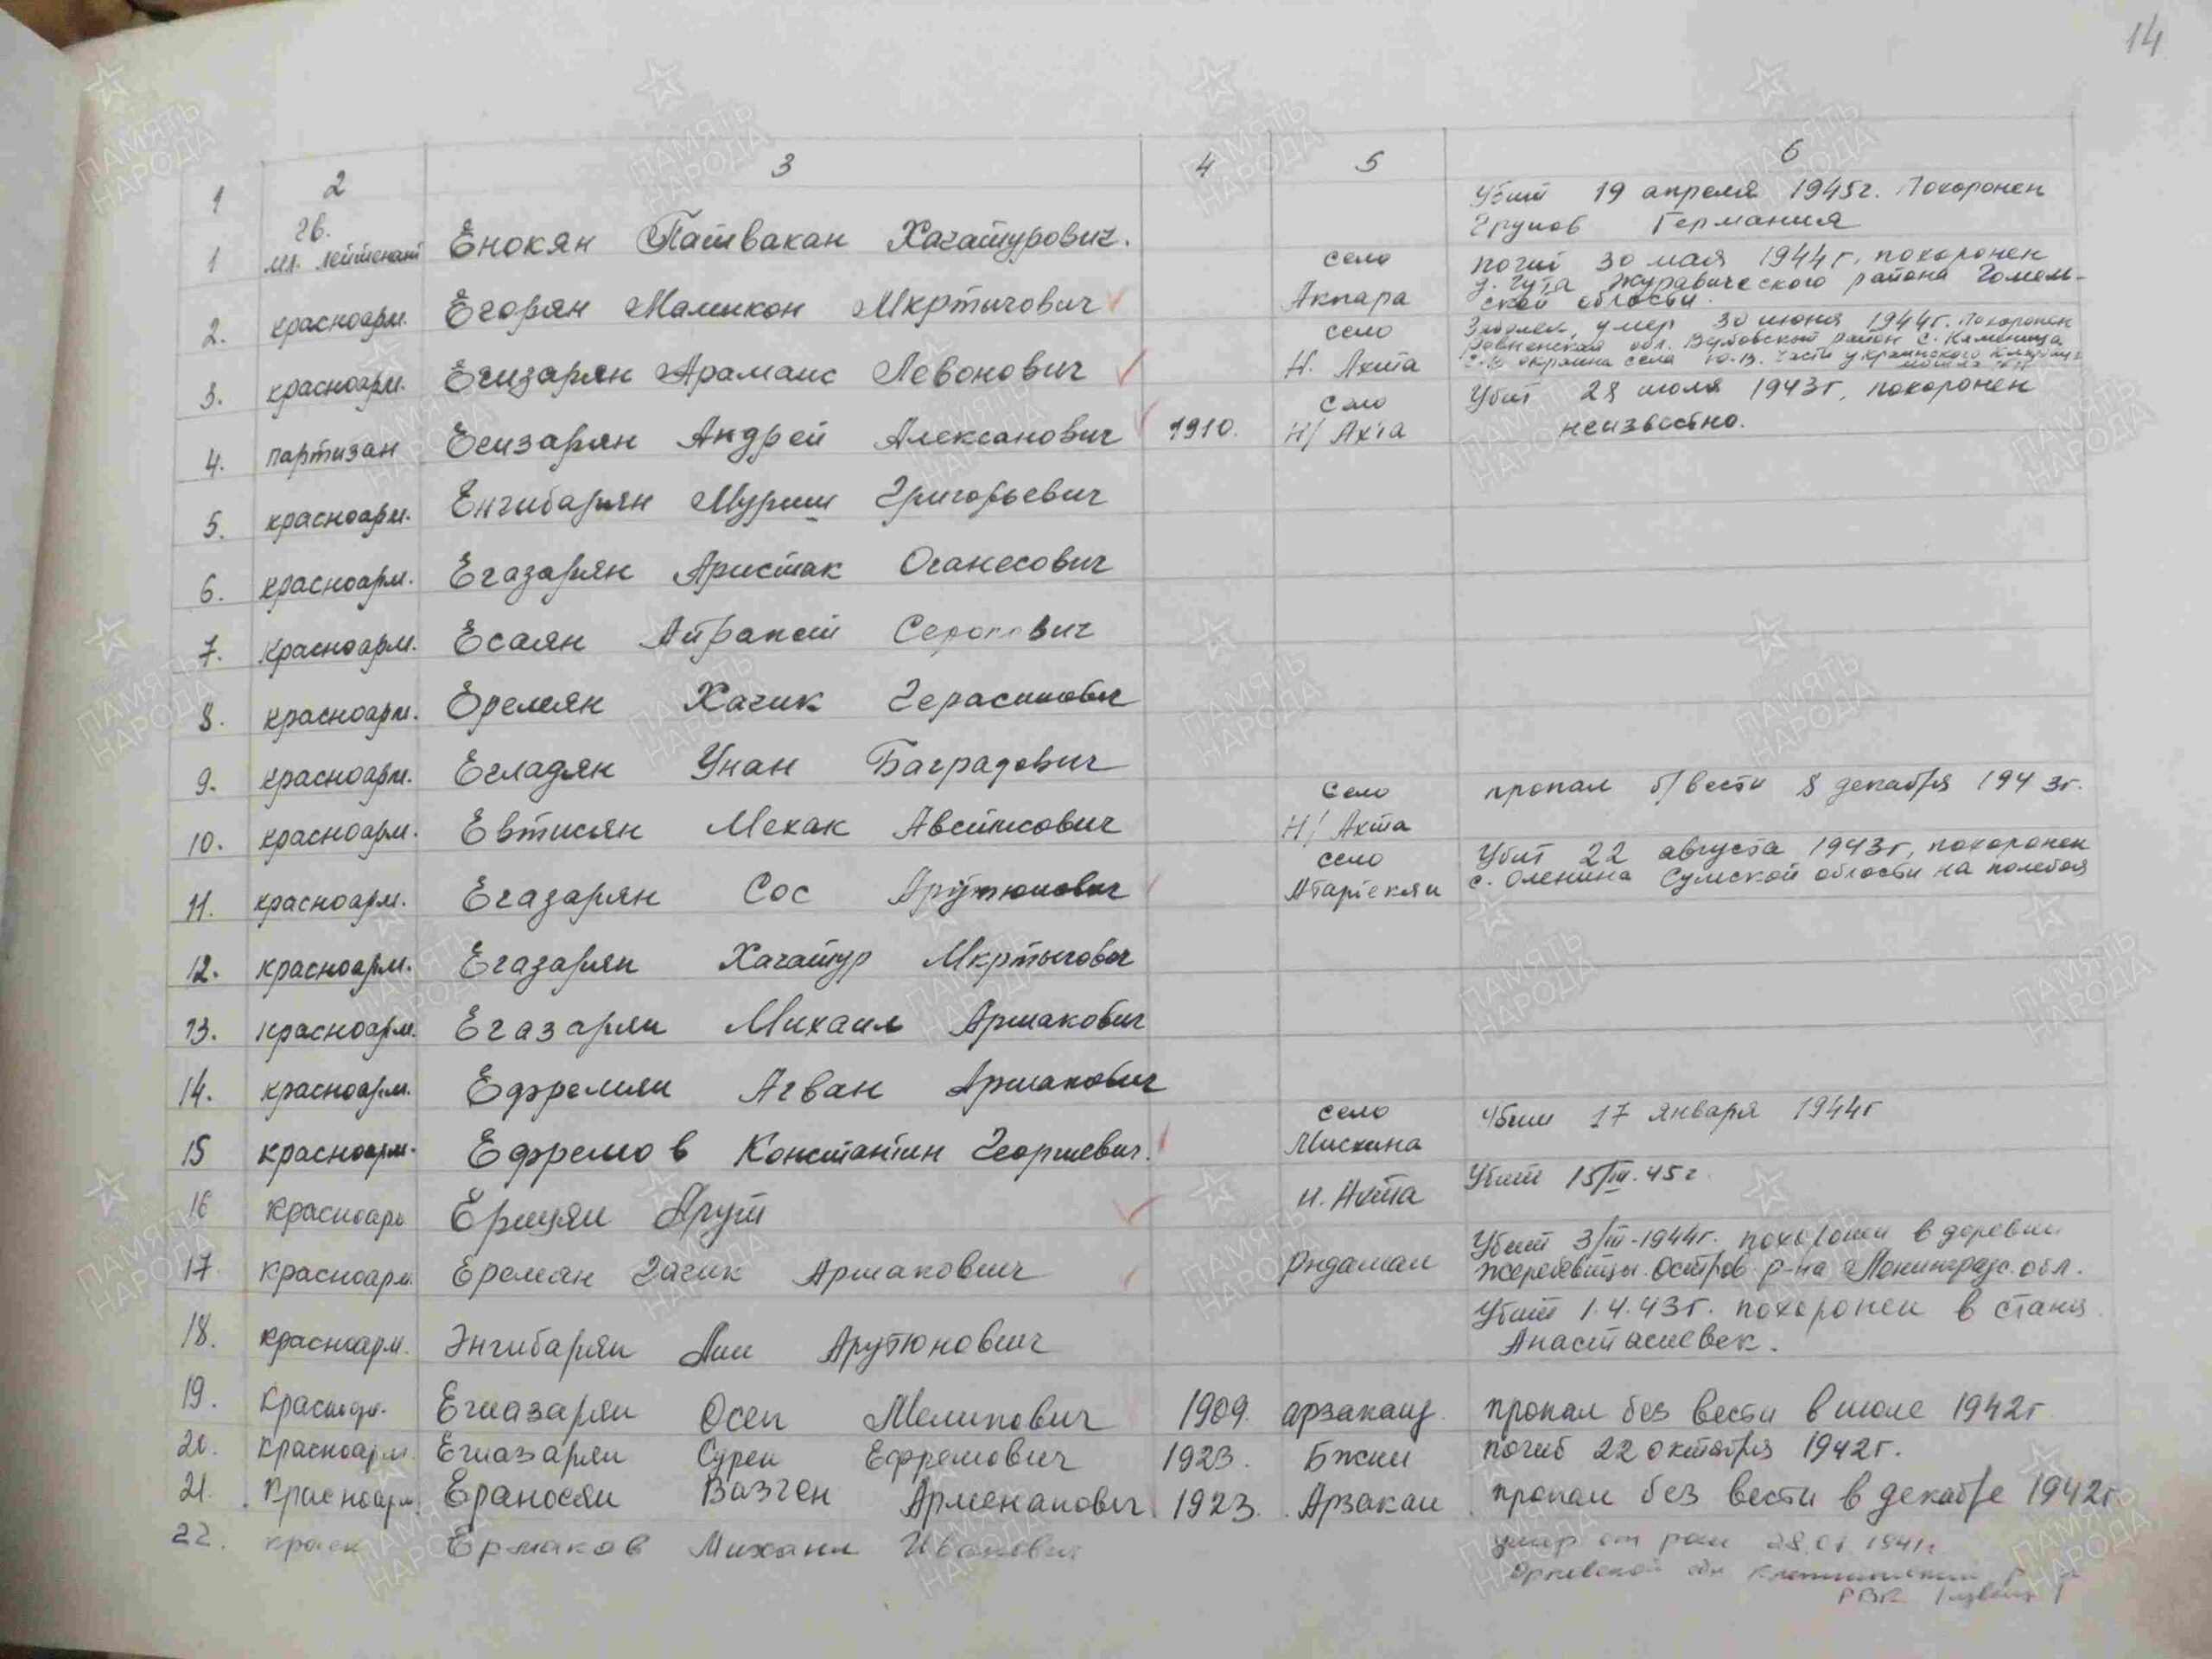 14
1 2 3 4 5 6
1 гв. мл. лейтенант Енокян Татвакан Хачатурович. Убит 19 апреля 1945г. Похоронен
Грунов Германия
2. красноарм. Егорян Мамикон Мкртичович село Акпара погиб 30 мая 1944г, похоронен
д. Гута Журавического района Гомель-
ской области.
3. красноарм. Егизарян Арамаис Левонович село Н. Ахта Заболел, умер 30 июня 1944г. Похоронен
обл. район с. Каменица
окраина села Ю.В. части украинского
4. партизан Егизарян Андрей Алексанович 1910. село Н/Ахта Убит 28 июля 1943г, похоронен
неизвестно.
5. красноарм. Енгибарян Муриш Григорьевич
6. красноарм. Егазарян Аристак Оганесович
7. красноарм. Есаян Айрапет
8. красноарм. Еремян Хачик Герасимович
9. красноарм. Егладян Унан Багратович
10. красноарм. Евтисян Мехак Аветисович село Н/Ахта пропал б/вести 8 декабря 1943г.
11. красноарм. Егазарян Сос Арутюнович село Атариекян Убит 22 августа 1943г, похоронен
с. Оленина Сумской области на полебоя
12. красноарм. Егазарян Хачатур Мкртычович
13. красноарм. Егазарян Михаил Аршакович
14. красноарм. Ефремян Агван Аршакович
15 красноарм. Ефремов Константин Георгиевич. село Мисхана Убит 17 января 1944г
16 красноарм Ерицян Арут н. Ахта Убит 15/III.45г.
17. красноарм. Еремян Гагик Аршакович Рндамал Убит 3/III-1944г. похоронен в деревни
Жеребевицы Остров. р-на Ленинградс. обл.
18. красноарм. Энгибарян Арутюнович Убит 1.4.43г. похоронен в стани
Анастасиевск.
19. Красноар. Егиазарян Осеп Меликович 1909. арзаканц. пропал без вести в июле 1942г
20. Красноарм. Егиазарян Сурен Ефремович 1923. Бжни погиб 22 октября 1942г.
21. Красноарм. Ераносян Вазген Арменакович 1923. Арзакан пропал без вести в декабре 1942г
22. красн Ермаков Михаил Иванович умер от ран
Орловской обл
ПАМЯТЬ НАРОДА